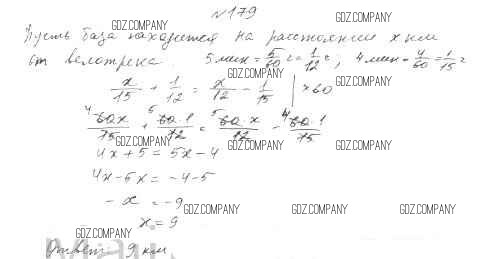 №179
Пусть база находится на расстоянии x км
от велотрека. 5 мин = 5/60 ч = 1/12 ч; 4 мин = 4/60 = 1/15 ч
x/15 + 1/12 = x/12 - 1/15 | ×60
60x/15 + 60·1/12 = 60·x/12 - 60·1/15
4x + 5 = 5x - 4
4x - 5x = -4 - 5
- x = -9
x = 9
Ответ: 9 км
GDZ.COMPANY
GDZ.COMPANY
GDZ.COMPANY
GDZ.COMPANY
GDZ.COMPANY
GDZ.COMPANY
GDZ.COMPANY
GDZ.COMPANY
GDZ.COMPANY
GDZ.COMPANY
GDZ.COMPANY
GDZ.COMPANY